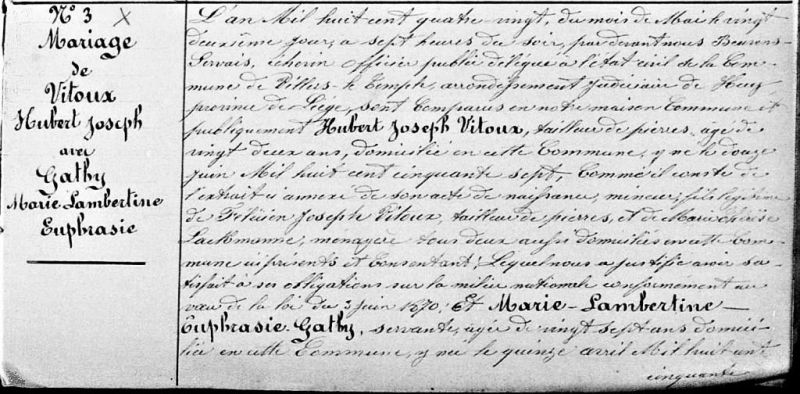 N° 3
Mariage
de
Vitoux
Hubert Joseph
avec
Gathy
Marie Lambertine
Euphrasie
L'an Mil huit cent quatre-vingt, du mois de Mai le vingt
deuxième jour, a sept heures du soir, par devant nous
Servais, échevin officier public délégué à l'état civil de la Com-
mune de Villers-le-Temple, arrondissement judiciaire de Huy
province de Liége, sont Comparus en notre maison Commune et
publiquement Hubert Joseph Vitoux, tailleur de pierres, âgé de
vingt deux ans, domicilié en cette Commune, y né le douze
juin Mil huit cent cinquante sept, Comme il conste de
l'extrait ci annexé de son acte de naissance, mineur, fils légitime
de Félicien Joseph Vitoux, tailleur de pierres, et de Marie
ménagère tous deux aussi domiciliés en cette Com-
mune ici présents et Consentant, Lequel nous a justifié avoir sa-
tisfait à ses obligations sur la milice nationale conformément au
vœu de la loi du 3 juin 1870; Et Marie-Lambertine-
Euphrasie Gathy, servante, âgée de vingt sept ans domici-
liée en cette Commune, y née le quinze avril Mil huit cent
cinquante